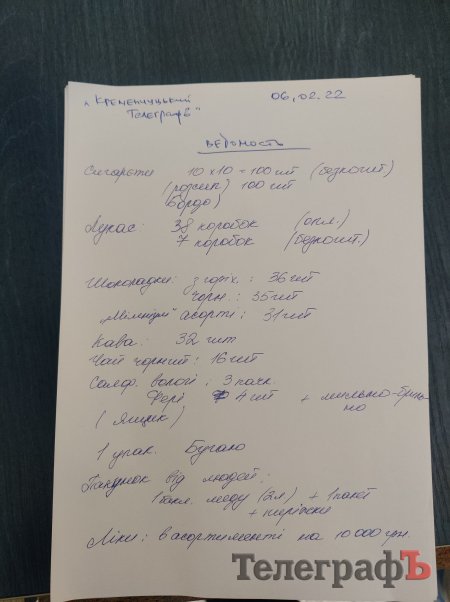 „Кременчуцький
Телеграфъ"
06.02.22
Ведомость
Сигарети 10 х 10 = 100 шт (безкошт)
(розсип) 100 шт
бордо)
Лукас: 38 коробок (опл.)
7 коробок (безкошт.)
Шоколадки: з горіх. : 36 шт
чорн. : 35 шт
„Міленіум" асорті : 31 шт
Кава: 32 шт
Чай чорний: 16 шт
Салф. вологі : 3 пачк.
Фері 4 шт + мильно-
(ящик)
1 упак.
від людей:
1 меду (2л) + 1 пакет
+
Ліки: в асортименті на 10 000 грн.
ТелеграфЪ